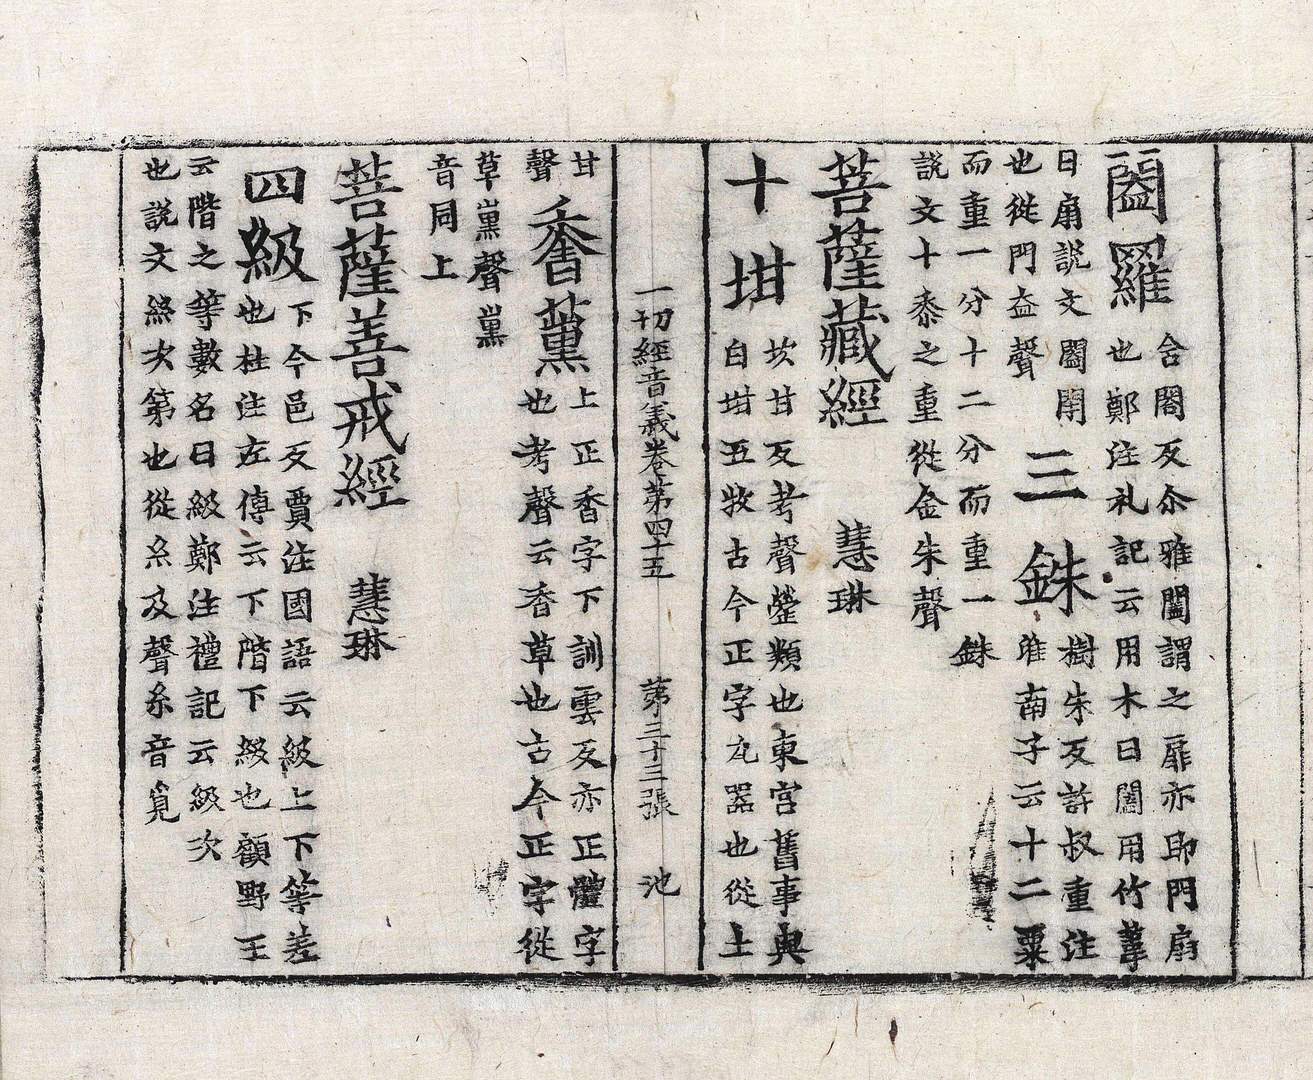 闔羅
舍閤反尒雅闔謂之扉亦即門扇
也鄭注礼記云用木曰闔用竹葦
曰扇説文闔閇
也從門盍聲
三銖
樹朱反許叔重注
淮南子云十二粟
而重一分十二分而重一銖
説文十黍之重從金朱聲
菩薩藏經 慧琳
十坩
坎甘反考聲罃類也東宫舊事典
白坩五牧古今正字瓦器也從土
一切經音義卷第四十五 第三十三張 池
甘
聲
薰
上正香字下訓雲反亦正體字
也考聲云香草也古今正字從
草薰聲薰
音同上
菩薩善戒經 慧琳
四級
下今邑反賈注國語云級上下等差
也杜注左傳云下階下級也顧野王
云階之等數名曰級鄭注禮記云級次
也説文絲次第也從糸及聲糸音覓